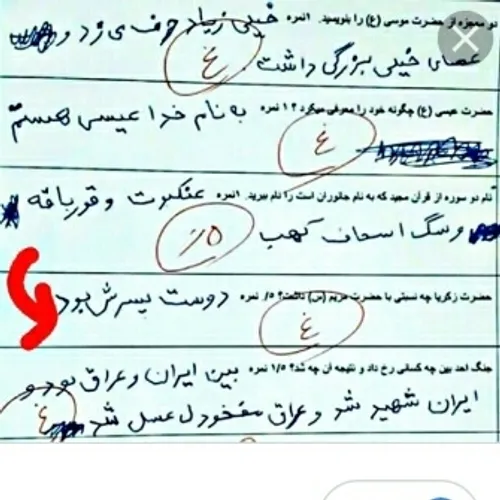 دو معجزه از حضرت موسی (ع) را بنویسید. ۱نمره خیلی زیاد حرف می زد و
عصای خیلی بزرگی داشت. غ
حضرت عیسی (ع) چگونه خود را معرفی میکرد ؟ ۱ نمره به نام خدا عیسی هستم
غ
نام دو سوره از قرآن مجید که به نام جانوران است را نام ببرید. ۱نمره عنکبوت و قورباقه
و سگ اسحاب کهب ۰/۵
حضرت زکریا چه نسبتی با حضرت مریم (س) داشت؟ ۰/۵ نمره دوست پسرش بود
غ
جنگ احد بین چه کسانی رخ داد و نتیجه آن چه شد؟ ۱/۵ نمره بین ایران و عراق بود و
ایران شهید شد و عراق مفخودل عسل شد غ